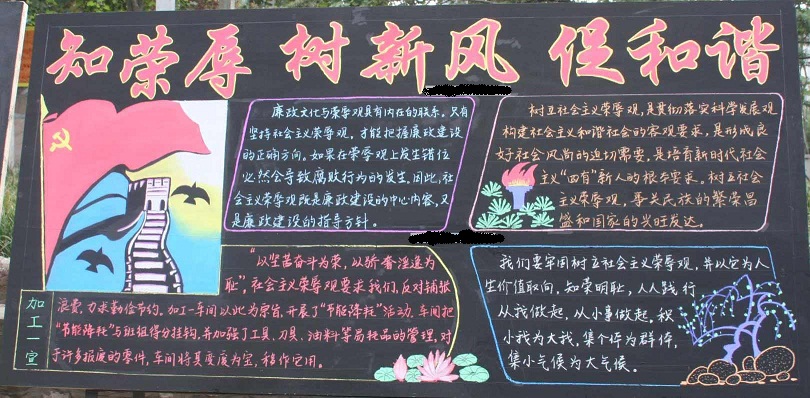 知荣辱 树新风 促和谐
廉政文化与荣辱观具有内在的联系。只有
坚持社会主义荣辱观，才能把握廉政建设
的正确方向。如果在荣辱观上发生错位
必然会导致腐败行为的发生，因此，社
会主义荣辱观既是廉政建设的中心内容，又
是廉政建设的指导方针。
树立社会主义荣辱观，是贯彻落实科学发展观
构建社会主义和谐社会的客观要求，是形成良
好社会风尚的迫切需要，是培育新时代社会
主义“四有”新人的根本要求。树立社会
主义荣辱观，事关民族的繁荣昌
盛和国家的兴旺发达。
“以坚苦奋斗为荣，以骄奢淫逸为
耻”，社会主义荣辱观要求我们，反对铺张
浪费，力求勤俭节约。加工一车间以此为宗旨，开展了“节能降耗”活动，车间把
“节能降耗”与班组得分挂钩，并加强了工具、刀具、油料等易耗品的管理，对
于许多报废的零件，车间将其变废为宝，移作它用。
加工一宣
我们要牢固树立社会主义荣辱观，并以它为人
生价值取向，知荣明耻，人人践行
从我做起，从小事做起，积
小我为大我，集个体为群体，
集小气候为大气候。